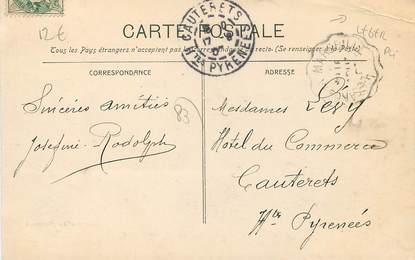 12€
CARTE POSTALE
Tous les Pays étrangers n'acceptent pas la correspondance au recto. (Se renseigner à la Poste).
CAUTERETS
Htes PYRENEES
LÉGER
Pli
CORRESPONDANCE
ADRESSE
Sincères amitiés
Joséphine Rodolph
83
Mesdames Lévy
Hôtel du Commerce
Cauterets
Htes Pyrenées